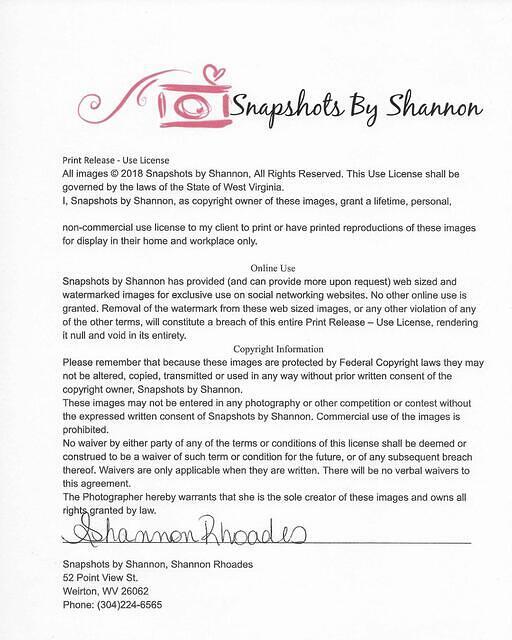 Snapshots By Shannon
Print Release - Use License
All images © 2018 Snapshots by Shannon, All Rights Reserved. This Use License shall be
governed by the laws of the State of West Virginia.
I, Snapshots by Shannon, as copyright owner of these images, grant a lifetime, personal,
non-commercial use license to my client to print or have printed reproductions of these images
for display in their home and workplace only.
Online Use
Snapshots by Shannon has provided (and can provide more upon request) web sized and
watermarked images for exclusive use on social networking websites. No other online use is
granted. Removal of the watermark from these web sized images, or any other violation of any
of the other terms, will constitute a breach of this entire Print Release – Use License, rendering
it null and void in its entirety.
Copyright Information
Please remember that because these images are protected by Federal Copyright laws they may
not be altered, copied, transmitted or used in any way without prior written consent of the
copyright owner, Snapshots by Shannon.
These images may not be entered in any photography or other competition or contest without
the expressed written consent of Snapshots by Shannon. Commercial use of the images is
prohibited.
No waiver by either party of any of the terms or conditions of this license shall be deemed or
construed to be a waiver of such term or condition for the future, or of any subsequent breach
thereof. Waivers are only applicable when they are written. There will be no verbal waivers to
this agreement.
The Photographer hereby warrants that she is the sole creator of these images and owns all
rights granted by law.
Shannon Rhoades
Snapshots by Shannon, Shannon Rhoades
52 Point View St.
Weirton, WV 26062
Phone: (304)224-6565